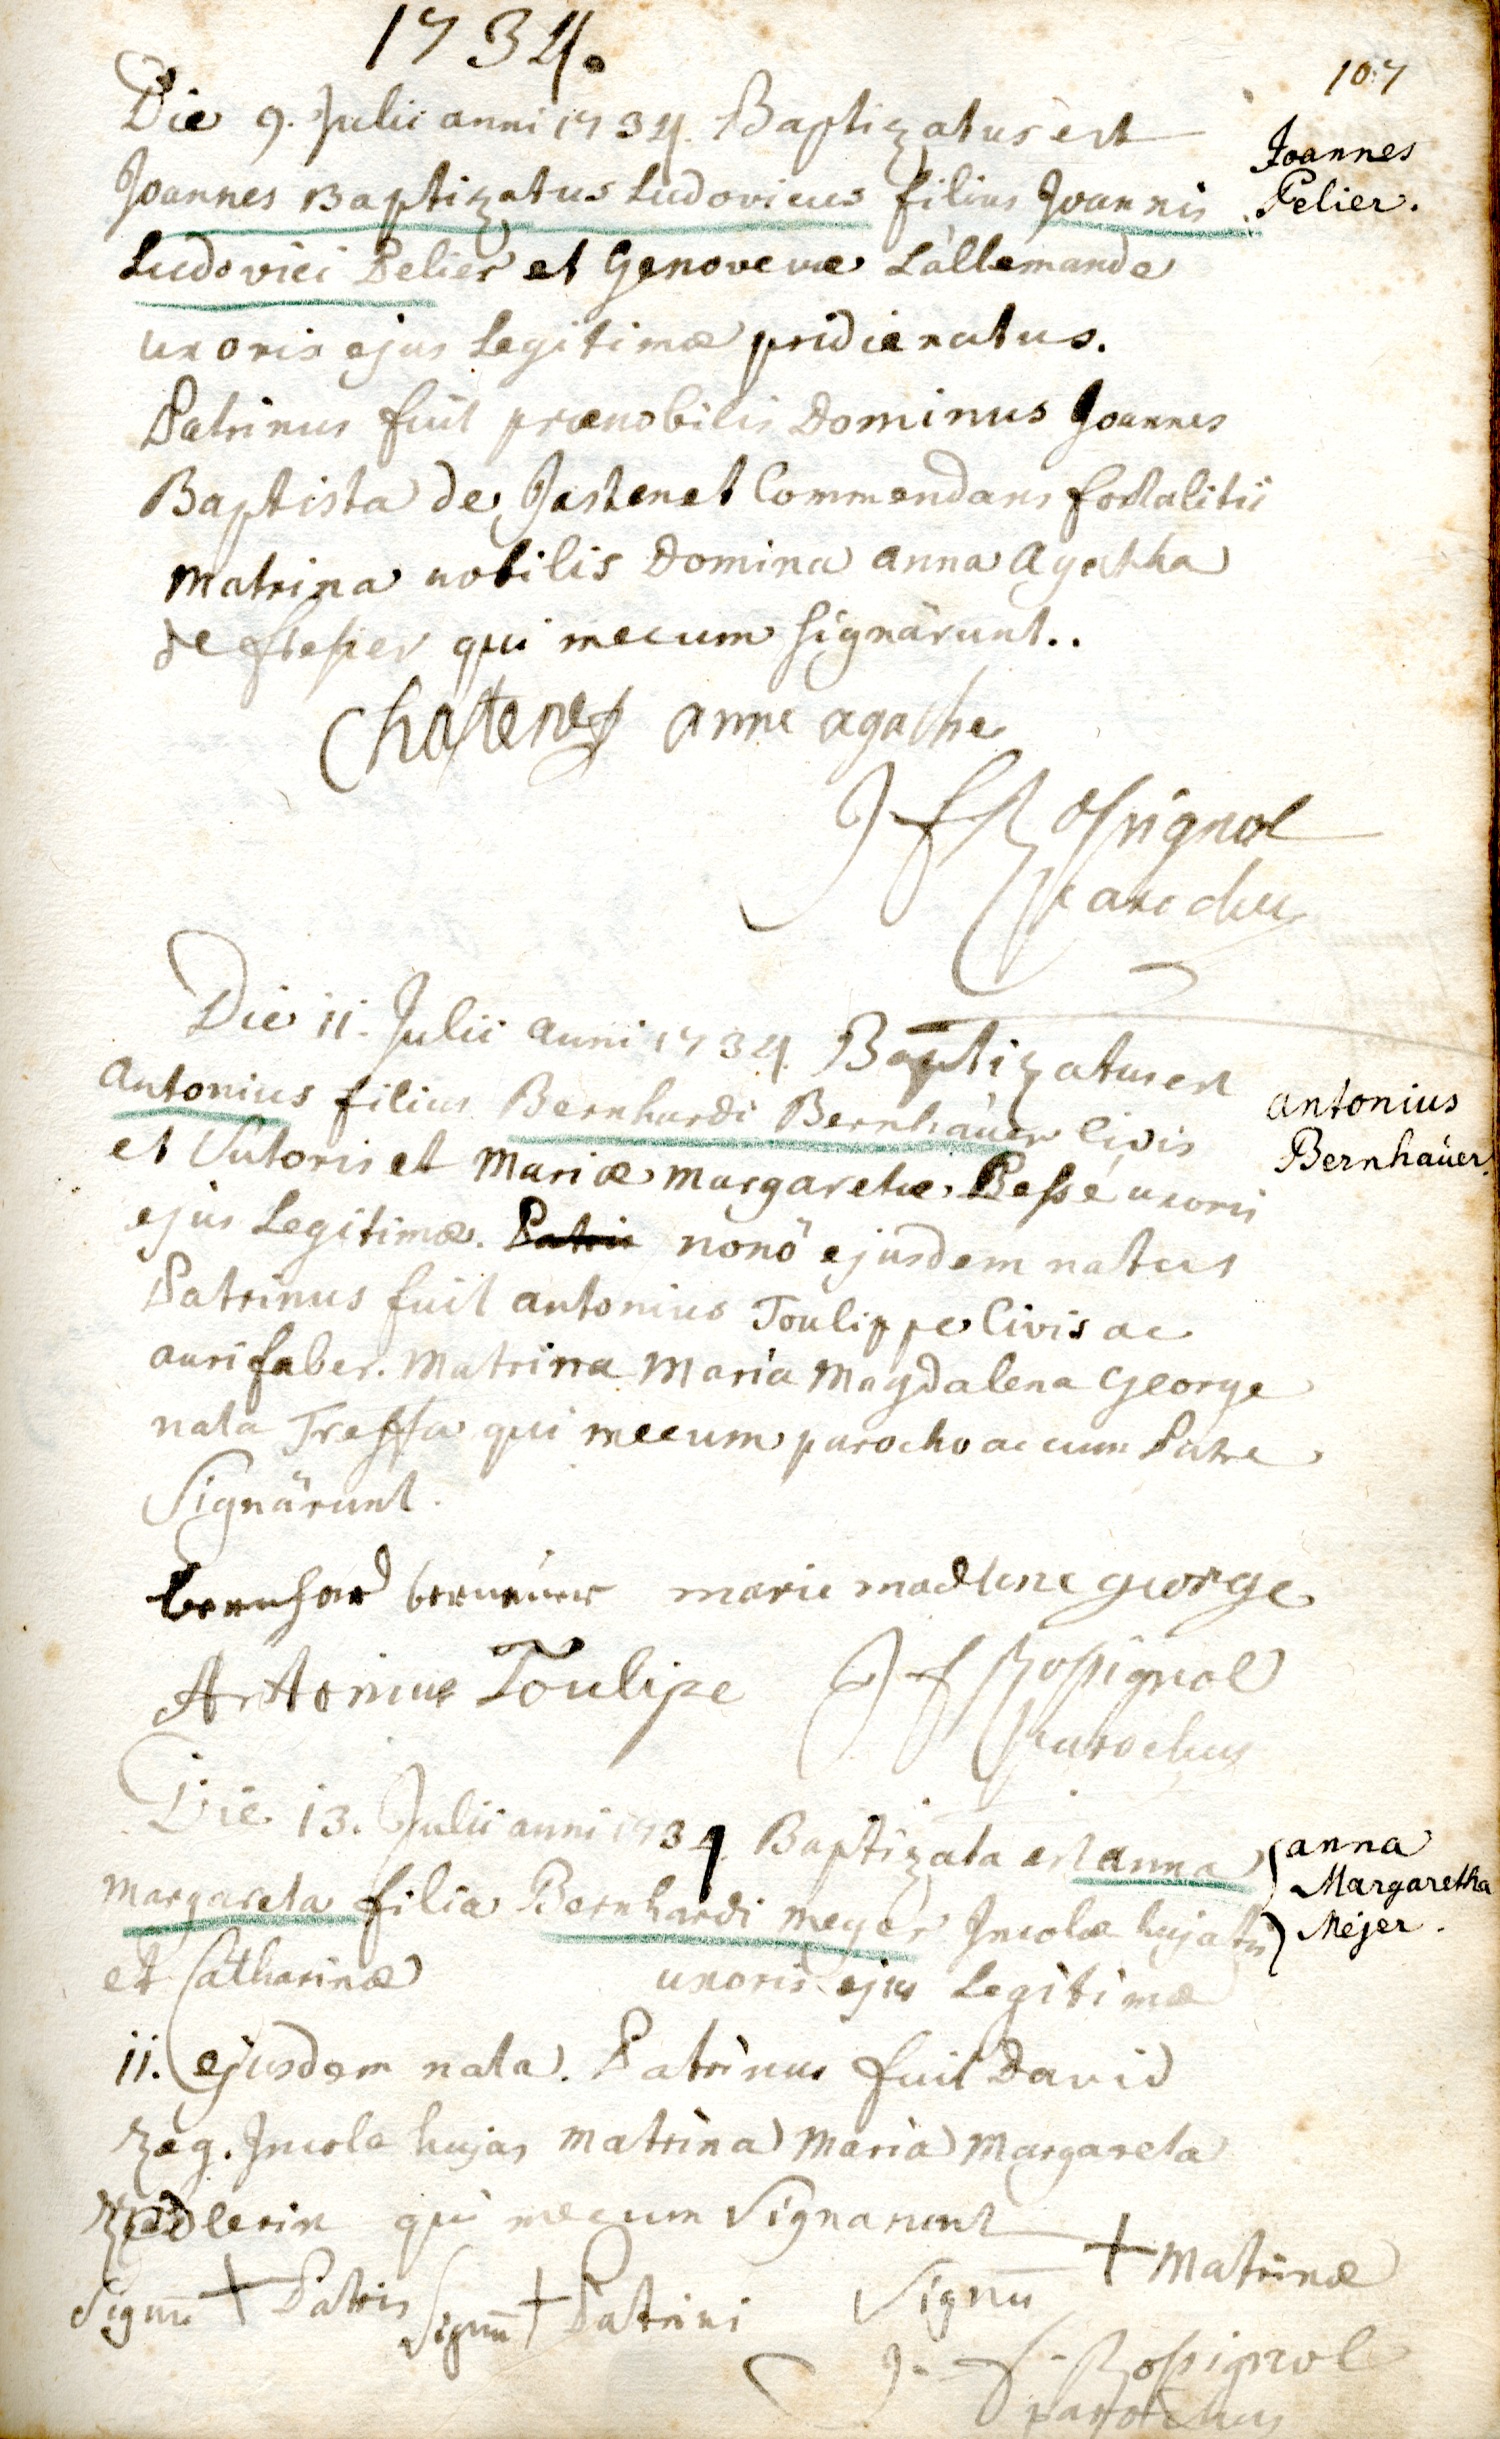 1734.
107
Die 9. Julii anni 1734. Baptizatus est
Joannes Baptizatus Ludovicus filius Joannis
Joannes
Pelier.
Ludovici Pelier et Genovevæ Lallemande
uxoris ejus Legitimæ pridie natus.
Patrinus fuit prænobilis Dominus Joannes
Baptista de Jastenet Commendans fortalitii
Matrina nobilis Domina Anna Agatha
de qui mecum signârunt..
Chastenet anne agathe
J f Rossignol
parochus
Die 11. Julii anni 1734. Baptizatus est
Antonius filius Bernhardi Bernhäuer Civis
Antonius
Bernhaüer.
et Sutoris et Mariæ Margarethæ Bessé uxoris
ejus Legitimæ. Patri nonô ejusdem natus
Patrinus fuit antonius Toulippe Civis ac
aurifaber. Matrina Maria Magdalena George
nata qui mecum parocho ac cum Patre
Signârunt.
bernhard
marie madlene george
Antonius Toulipe
J f Rossignol
parochus
Die 13. Julii anni 1734 Baptizata est anna
Margareta filia Bernhardi Meyer Incolæ hujatis
anna
Margaretha
Mejer.
et Catharinæ uxoris ejus Legitimæ
11. ejusdem nata. Patrinus fuit David
Zeg. Incola hujas Matrina Maria Margareta
qui mecum Signarunt
Signū + Patris Signū + Patrini Signū + Matrinæ
J. f. Rossignol
parochus